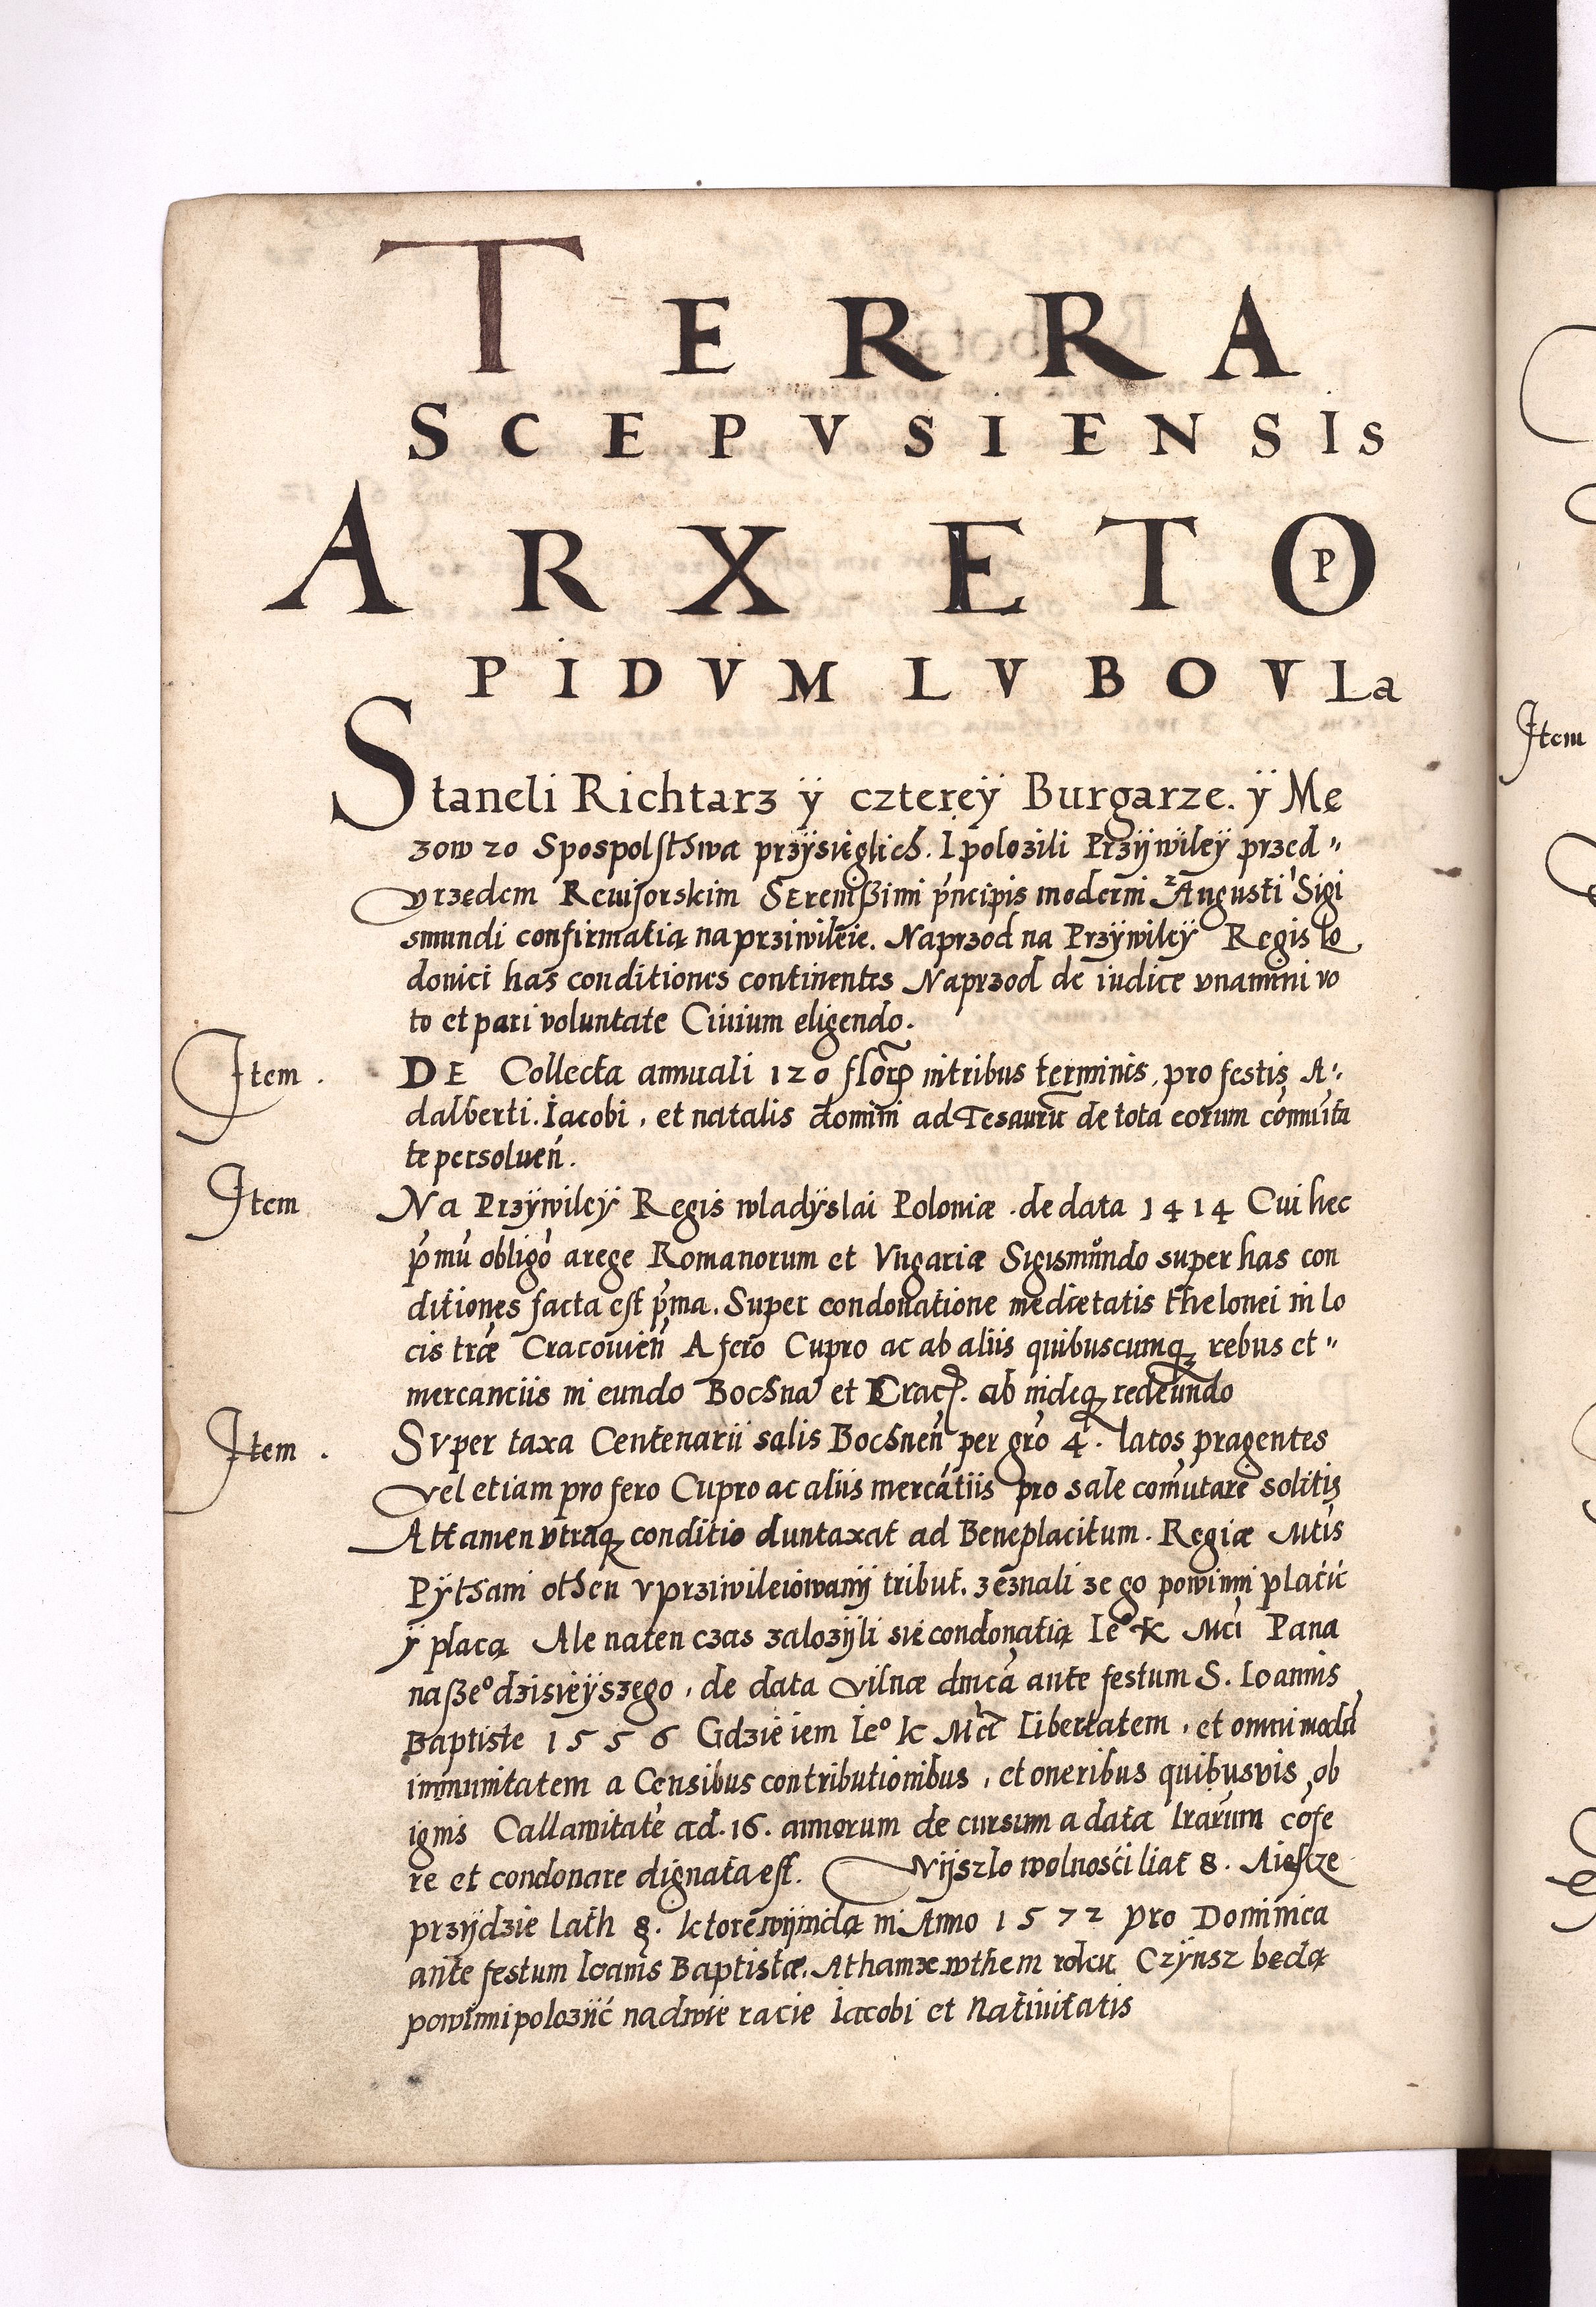 TERRA
SCEPVSIENSIS
ARX ET OP
PIDVM LVBOVLa
Staneli Richtarz ÿ cztereÿ Burgarze. ÿ Mę
zow 20 Spospolsthwa przÿsięglich. I polozili Przÿwileÿ przed〃
vrzędem Rewisorskim Serenißimi pńcipis moderni Augusti Sigi
smundi confirmatią na prziwileie. Naprzod na Przÿwileÿ Regis lo
donici has conditiones continentes Naprzod de iudice vnamini vo
to et pari voluntate Ciuium eligendo.
Item. DE Collecta annuali 120 florꝝ in tribus terminis, pro festis A〃
dalberti. Iacobi, et natalis domini ad Tesaurū de tota eorum cōmuīta
te persoluen̄.
Item Na Przÿwileÿ Regis wladÿslai Poloniæ. de data 1414 Cui hec
p̄mū obligō a rege Romanorum et Vngariæ Sigismůndo super has con
ditiones facta est p̄ma. Super condonatione medietatis thelonei in lo
cis trǣ Cracouien̄ A fero Cupro ac ab aliis quibuscumqꝫ rebus et〃
meranciis in eundo Bochna et Crac. ab indeqꝫ redeundo
Item. SVper taxa Centenarii salis Bochnen̄ per grō 4. latos pragentes
vel etiam pro fero Cupro ac aliis mercātiis pro sale com̄utare solitis
Attamen vtraqꝫ conditio duntaxat ad Beneplacitum. Regiæ Mtis
Pÿthani othen vprziwileiowanÿ tribut. zeznali ze go powinni płacic
ÿ placą Ale naten czas zalozÿli sie condonatią Ieº k Mci Pana
naßeº dzisieÿszego, de data vilnæ dnīca ante festum S. Ioannis
Baptiste 1556 Gdzie iem Ieº k Mci Libertatem, et omnimodā
immunitatem a Censibus contributionibus, et oneribus quibusvis ob
ignis Callamitatē ad. 16. annorum de cursum a data lrārum cōfe
re et condonare dignata est. Wÿszlo wolnosci liat 8. A iescze
przÿdzie lath 8. ktore wÿnidą in Anno 1572 pro Dominica
ante festum Ioanis Baptistæ. A thamze wthem roku Czÿnsz będą
powinni polozÿć na dwie racie Iacobi et Natiuitatis
Item